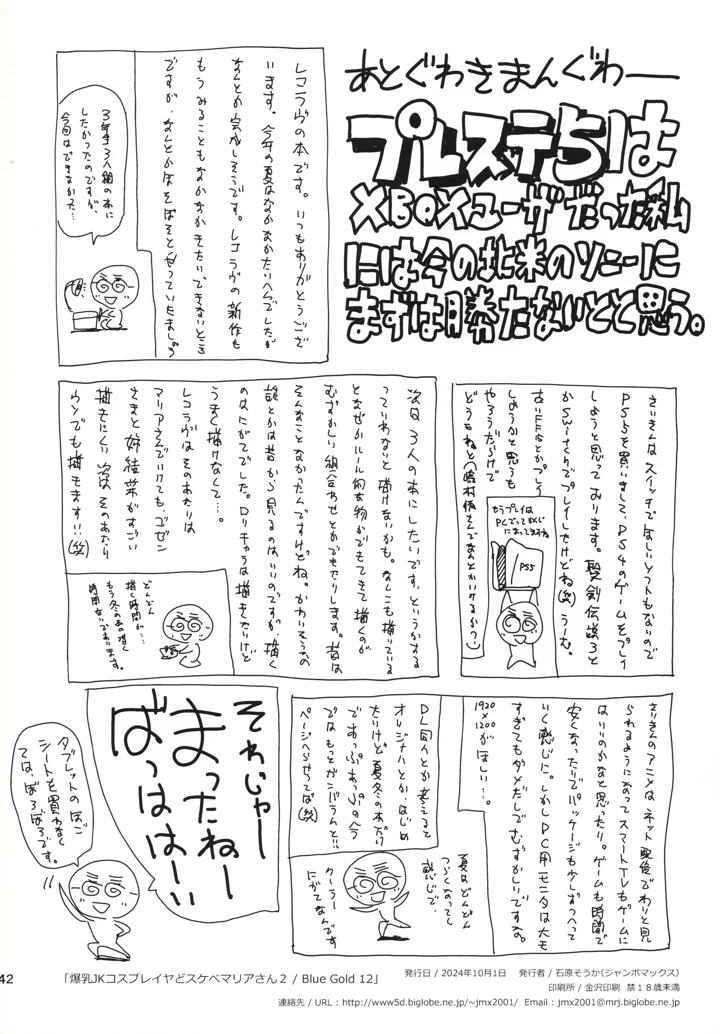 あとぐわきまんぐわー
プレステ5は
XBOXユーザだった私
には今の北米のソニーに
まずは勝たないとと思う。
レコラヴの本です。いつもありがとうござ
います。今年の夏はなかなかたいへんでしたが
なんとか完成しそうです。レコラヴの新作も
もうみることもなかなかきたいできないところ
ですが、なんとかほそぼそとやっていきましょう
3年生3人組の本に
したかったのですが、
今回はできなかった…
さいきんはスイッチでほしいソフトもないので
PS5を買いまして、PS4のゲームをプレイ
しようと思っております。聖剣伝説3と
かSwitchでプレイしたけどね(笑)うーむ。
しようかと思うも
やろうだらけで
もうプレイは
PS5
次回3人の本にしたいです。というかまる
っていわないと描けないかも。なんこも描いている
となぜかルール的な物がでてきて描くのが
むずかしい組合わせとかできたりします。昔は
そんなことなかったんですけどね。かわいそうなの
談とかは昔から見るのはいいのですが、描く
のはにがてでした。ロリキャラは描きたいけど
うまく描けなくて…。
レコラヴはそのあたりは
マリアさんでいけても、ゴゼン
さまと姉結带がすごい
描きにくい次はそのあたり
ウンでも描きます!!(笑)
どんどん
描く時間が…
もう冬の本の描く
時間ないであります。
さいきんのアニメは、ネット配信でわりと見
られるようになってスマートTVもゲームに
はいいのかなと思ったり。ゲームも時間で
安くなったりでパッケージも少しずつへって
いく感じに。しかしPC用モニタは大も
すぎてもダメだしでむずかしいですな。
1920
×1200がほしい…。
DL同人とか考えると
オリジナルとか、はじめ
たいけど夏冬の本だけ
であっぷあっぷの今
ではもっとガンバらんと!!
ページへらせってば(笑)
夏はどんどん
つらくなってく
感じで
クーラー
にがてなんです
それじゃー
まったねー
ばっはは〜い
タブレットのほご
シートを買わなく
ては、ぼろぼろです。
42
「爆乳JKコスプレイヤどスケベマリアさん2 / Blue Gold 12」
発行日 / 2024年10月1日 発行者 / 石原そうか(ジャンボマックス)
印刷所 / 金沢印刷 禁18歳未満
連絡先 / URL : http://www5d.biglobe.ne.jp/~jmx2001/ Email : jmx2001@mrj.biglobe.ne.jp